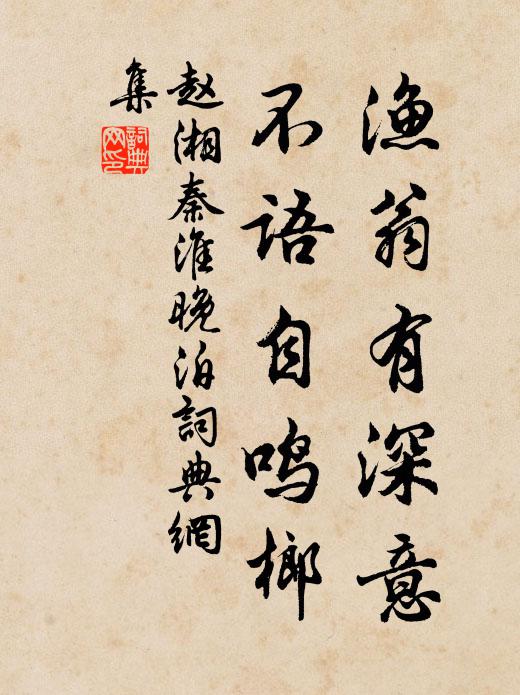 渔翁有深意
不语自鸣榔
赵湘秦淮晚泊詞典網
集
詞典
网印